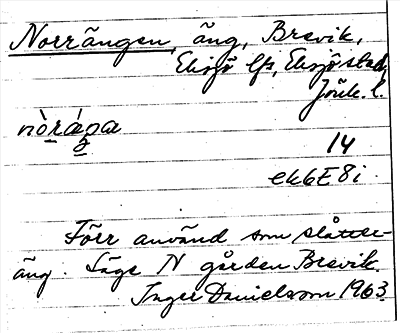 Norrängen, äng, Brevik,
Eksjö lfs, Eksjö stad,
Jönk. l.
nòráŋa
14
ek6E8i
Förr använd som slåtter-
äng. Läge N gården Brevik.
Inger Danielsson 1963